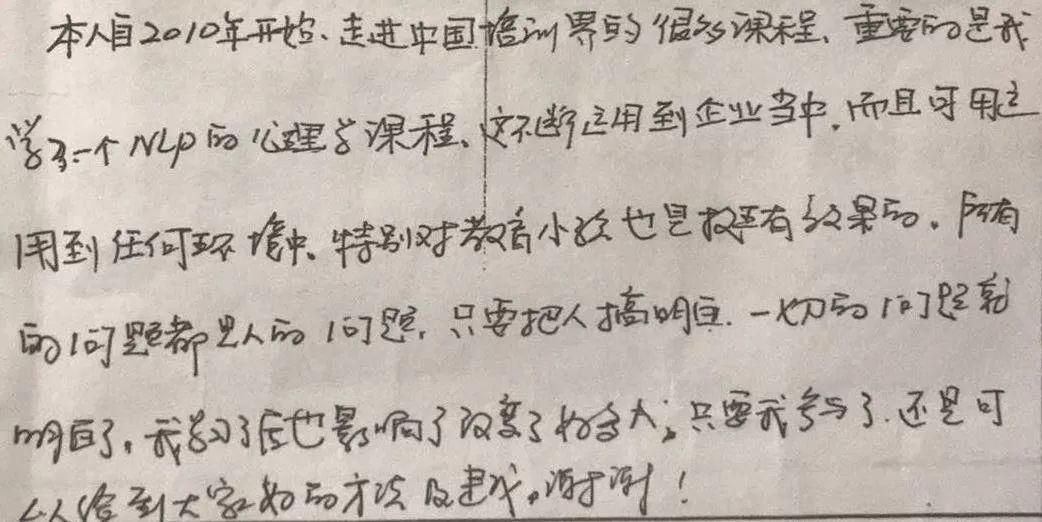 本人自2010年开始、走进中国培训界的很多课程、重要的是我
学了一个NLP的心理学课程、这不断运用到企业当中,而且可用运
用到任何环境中。特别对教育小孩也是挺有效果的。所有
的问题都是人的问题,只要把人搞明白.一切的问题就
明白了,我学习了后也影响了改变了好多人;只要我参与了.还是可
以给到大家好的方法及建议。谢谢!